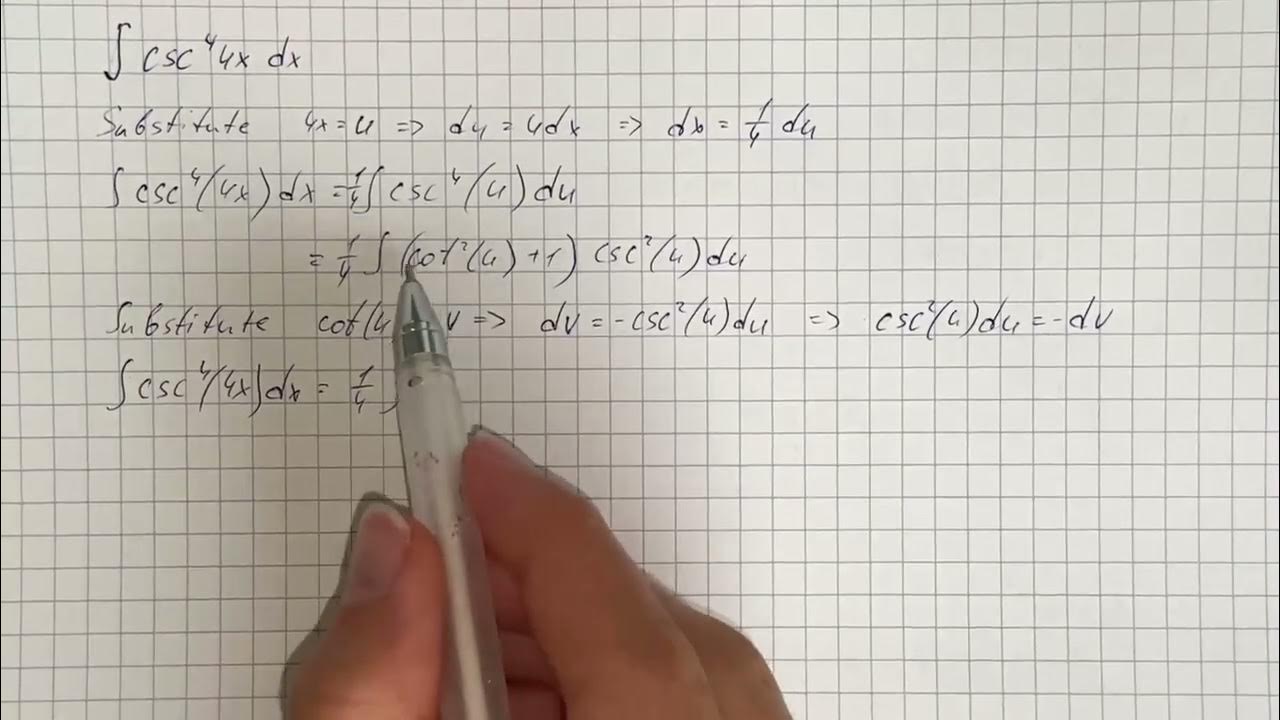 ∫ csc⁴ 4x dx
Substitute 4x = u => du = 4dx => dx = 1/4 du
∫ csc⁴(4x) dx = 1/4 ∫ csc⁴(u) du
= 1/4 ∫ (cot²(u) + 1) csc²(u) du
Substitute cot(u v => dv = -csc²(u) du => csc²(u) du = -dv
∫ csc⁴(4x) dx = 1/4 ∫